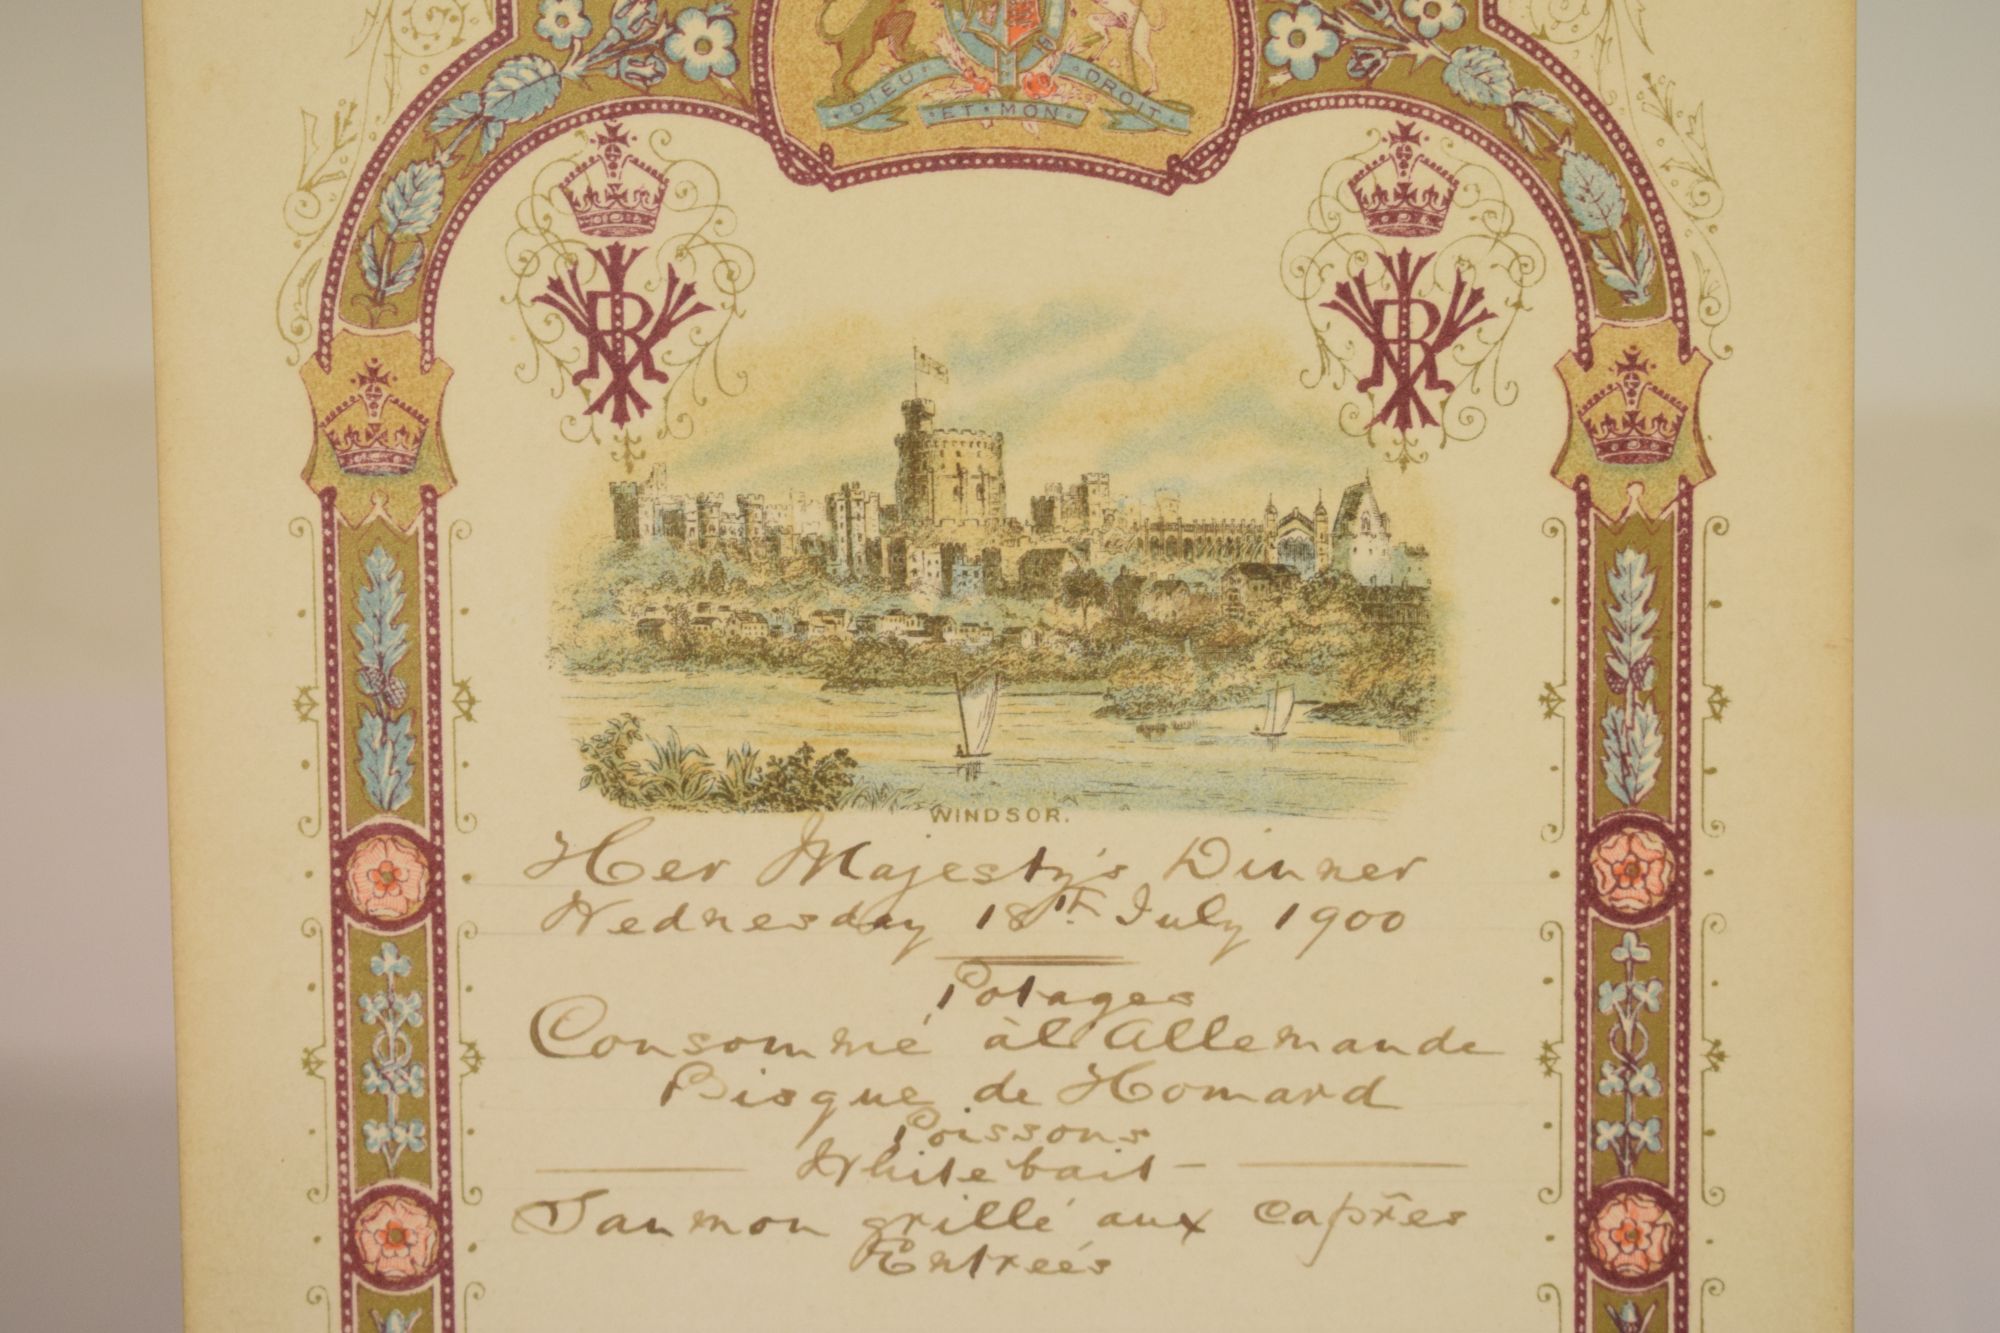 DIEU ET · MON · DROIT
VRI VRI
WINDSOR.
Her Majesty's Dinner
Wednesday 18th July 1900
Potages
Consommé à l'Allemande
Bisque de Homard
Poissons
Whitebait
Saumon grillé aux capres
Entreés